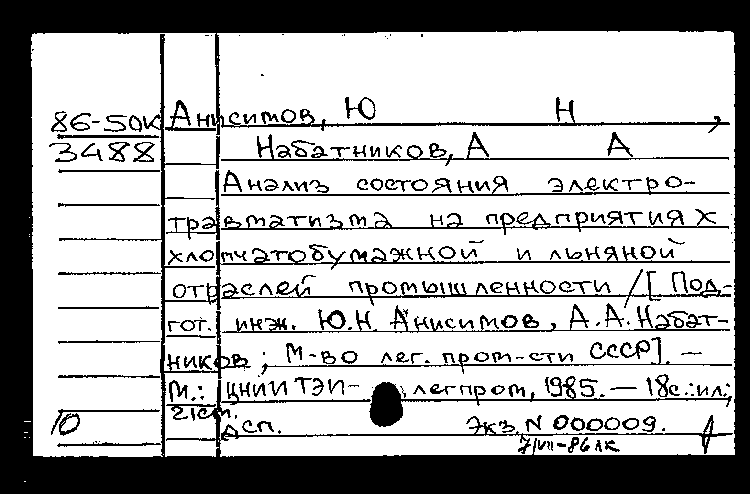 86-50К Анисимов, Ю Н ,
3488 Набатников, А А
Анализ состояния электро-
травматизма на предприятиях
хлопчатобумажной и льняной
отраслей промышленности /[Под-
гот. инж. Ю.Н. Анисимов, А.А. Набат-
ников; М-во лег. пром-сти СССР]. —
М.: ЦНИИТЭИ- легпром, 1985. — 18с.:ил;
21см.
10 ДСП. Экз. N 000009.
7/VII-86 лк